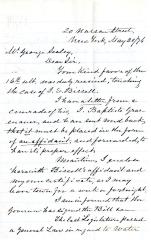 20 Nassau Street,
New York, May 29/76
Mr George Sealey,
Dear Sir,
Your kind favor of the
16th ult, was duly received, touching
the case of I. L. Bicknell.
I have a letter from a
comrade of his, J. Baptiste
and have sent word back,
that it must be placed in the form
of an affidavit, and forwarded, to
have its proper effect.
Meantime, I enclose
herewith Bicknell's affidavit and
my own certificate, as I may
leave town for a week or fortnight.
I am informed that the
Governor has signed the Bill
The last Legislature passed
a General Law in regard to Water